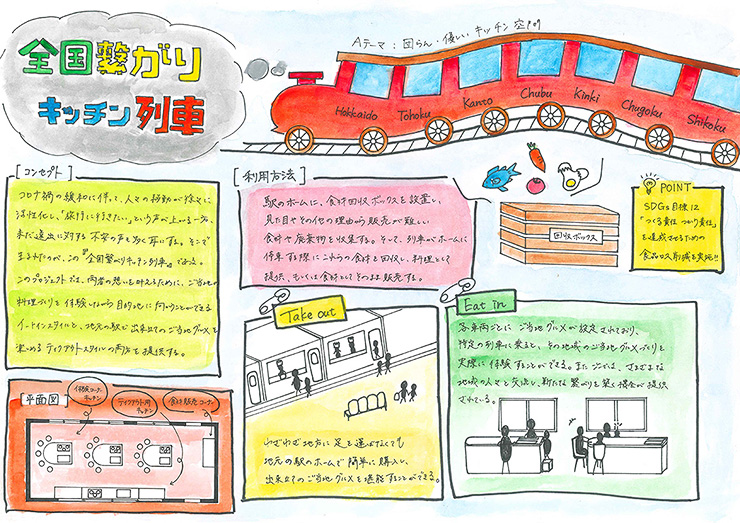 全国繋がり
キッチン列車
Aテーマ：団らん・優しいキッチン空間
Hokkaido
Tohoku
Kanto
Chubu
Kinki
Chugoku
Shikoku
[コンセプト]
コロナ禍の緩和に伴って、人々の移動が徐々に
活性化し、「旅行に行きたい」という声が上がる一方、
未だ遠出に対する不安の声も多く耳にする。そこで
生まれたのが、この『全国繋がりキッチン列車』である。
このプロジェクトでは、両者の想いを叶えるために、ご当地の
料理づくりを体験しながら目的地に向かうことができる
イートインスタイルと、地元の駅で出来立てのご当地グルメを
楽しめるテイクアウトスタイルの両店を提供する。
[利用方法]
駅のホームに、食材回収ボックスを設置し、
見た目やその他の理由から販売が難しい
食材や廃棄物を収集する。そして、列車がホームに
停車する際にこれらの食材を回収し、料理として
提供、もしくは食材としてそのまま販売する。
回収ボックス
POINT
SDGs目標12
「つくる責任 つかう責任」
を達成させるための
食品ロス削減を実施!!
平面図
体験コーナー
キッチン
テイクアウト用
キッチン
食材販売コーナー
Take out
わざわざ地方に足を運ばなくても
地元の駅のホームで簡単に購入し、
出来立てのご当地グルメを堪能することができる。
Eat in
各車両ごとにご当地グルメが設定されており、
特定の列車に乗ると、その地域のご当地グルメづくりを
実際に体験することができる。またここでは、さまざまな
地域の人々と交流し、新たな繋がりを築く機会が提供
されている。